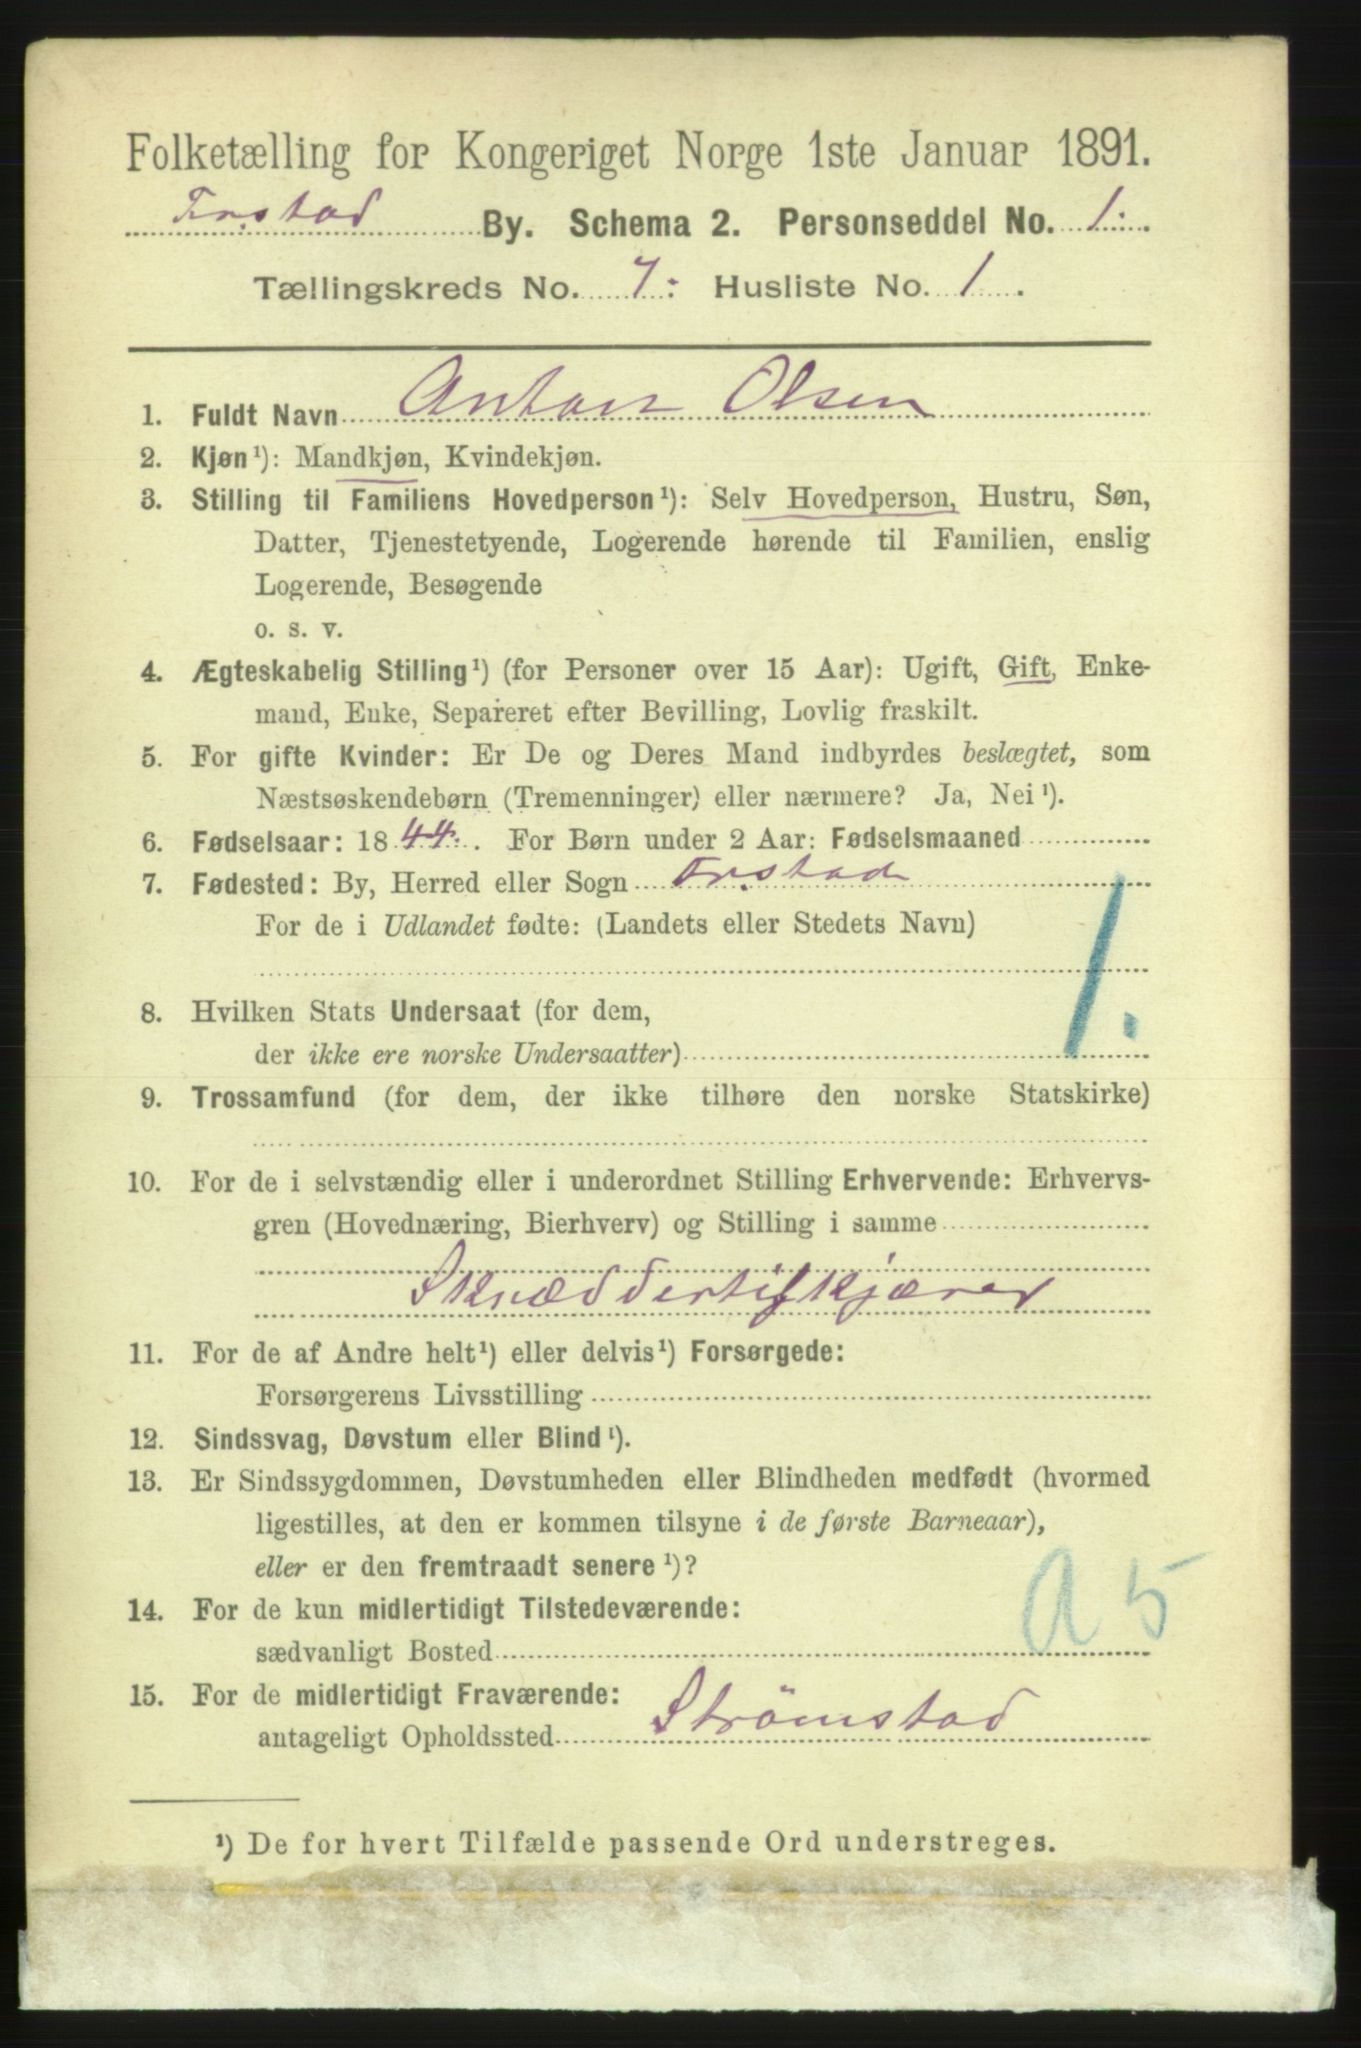 Folketælling for Kongeriget Norge 1ste Januar 1891.
Fr.stad By. Schema 2. Personseddel No. 1.
Tællingskreds No. 7. Husliste No. 1.
1. Fuldt Navn Anton Olsen
2. Kjøn¹): Mandkjøn, Kvindekjøn.
3. Stilling til Familiens Hovedperson¹): Selv Hovedperson, Hustru, Søn,
Datter, Tjenestetyende, Logerende hørende til Familien, enslig
Logerende, Besøgende
o. s. v.
4. Ægteskabelig Stilling¹) (for Personer over 15 Aar): Ugift, Gift, Enke-
mand, Enke, Separeret efter Bevilling, Lovlig fraskilt.
5. For gifte Kvinder: Er De og Deres Mand indbyrdes beslægtet, som
Næstsøskendebørn (Tremenninger) eller nærmere? Ja, Nei¹).
6. Fødselsaar: 1844. For Børn under 2 Aar: Fødselsmaaned
7. Fødested: By, Herred eller Sogn Fr.stad
For de i Udlandet fødte: (Landets eller Stedets Navn)
1.
8. Hvilken Stats Undersaat (for dem,
der ikke ere norske Undersaatter)
9. Trossamfund (for dem, der ikke tilhøre den norske Statskirke)
10. For de i selvstændig eller i underordnet Stilling Erhvervende: Erhvervs-
gren (Hovednæring, Bierhverv) og Stilling i samme
Skræddertilskjærer
11. For de af Andre helt¹) eller delvis¹) Forsørgede:
Forsørgerens Livsstilling
12. Sindssvag, Døvstum eller Blind¹).
13. Er Sindssygdommen, Døvstumheden eller Blindheden medfødt (hvormed
ligestilles, at den er kommen tilsyne i de første Barneaar),
eller er den fremtraadt senere¹)?
A 5
14. For de kun midlertidigt Tilstedeværende:
sædvanligt Bosted
15. For de midlertidigt Fraværende:
antageligt Opholdssted Strömstad
¹) De for hvert Tilfælde passende Ord understreges.